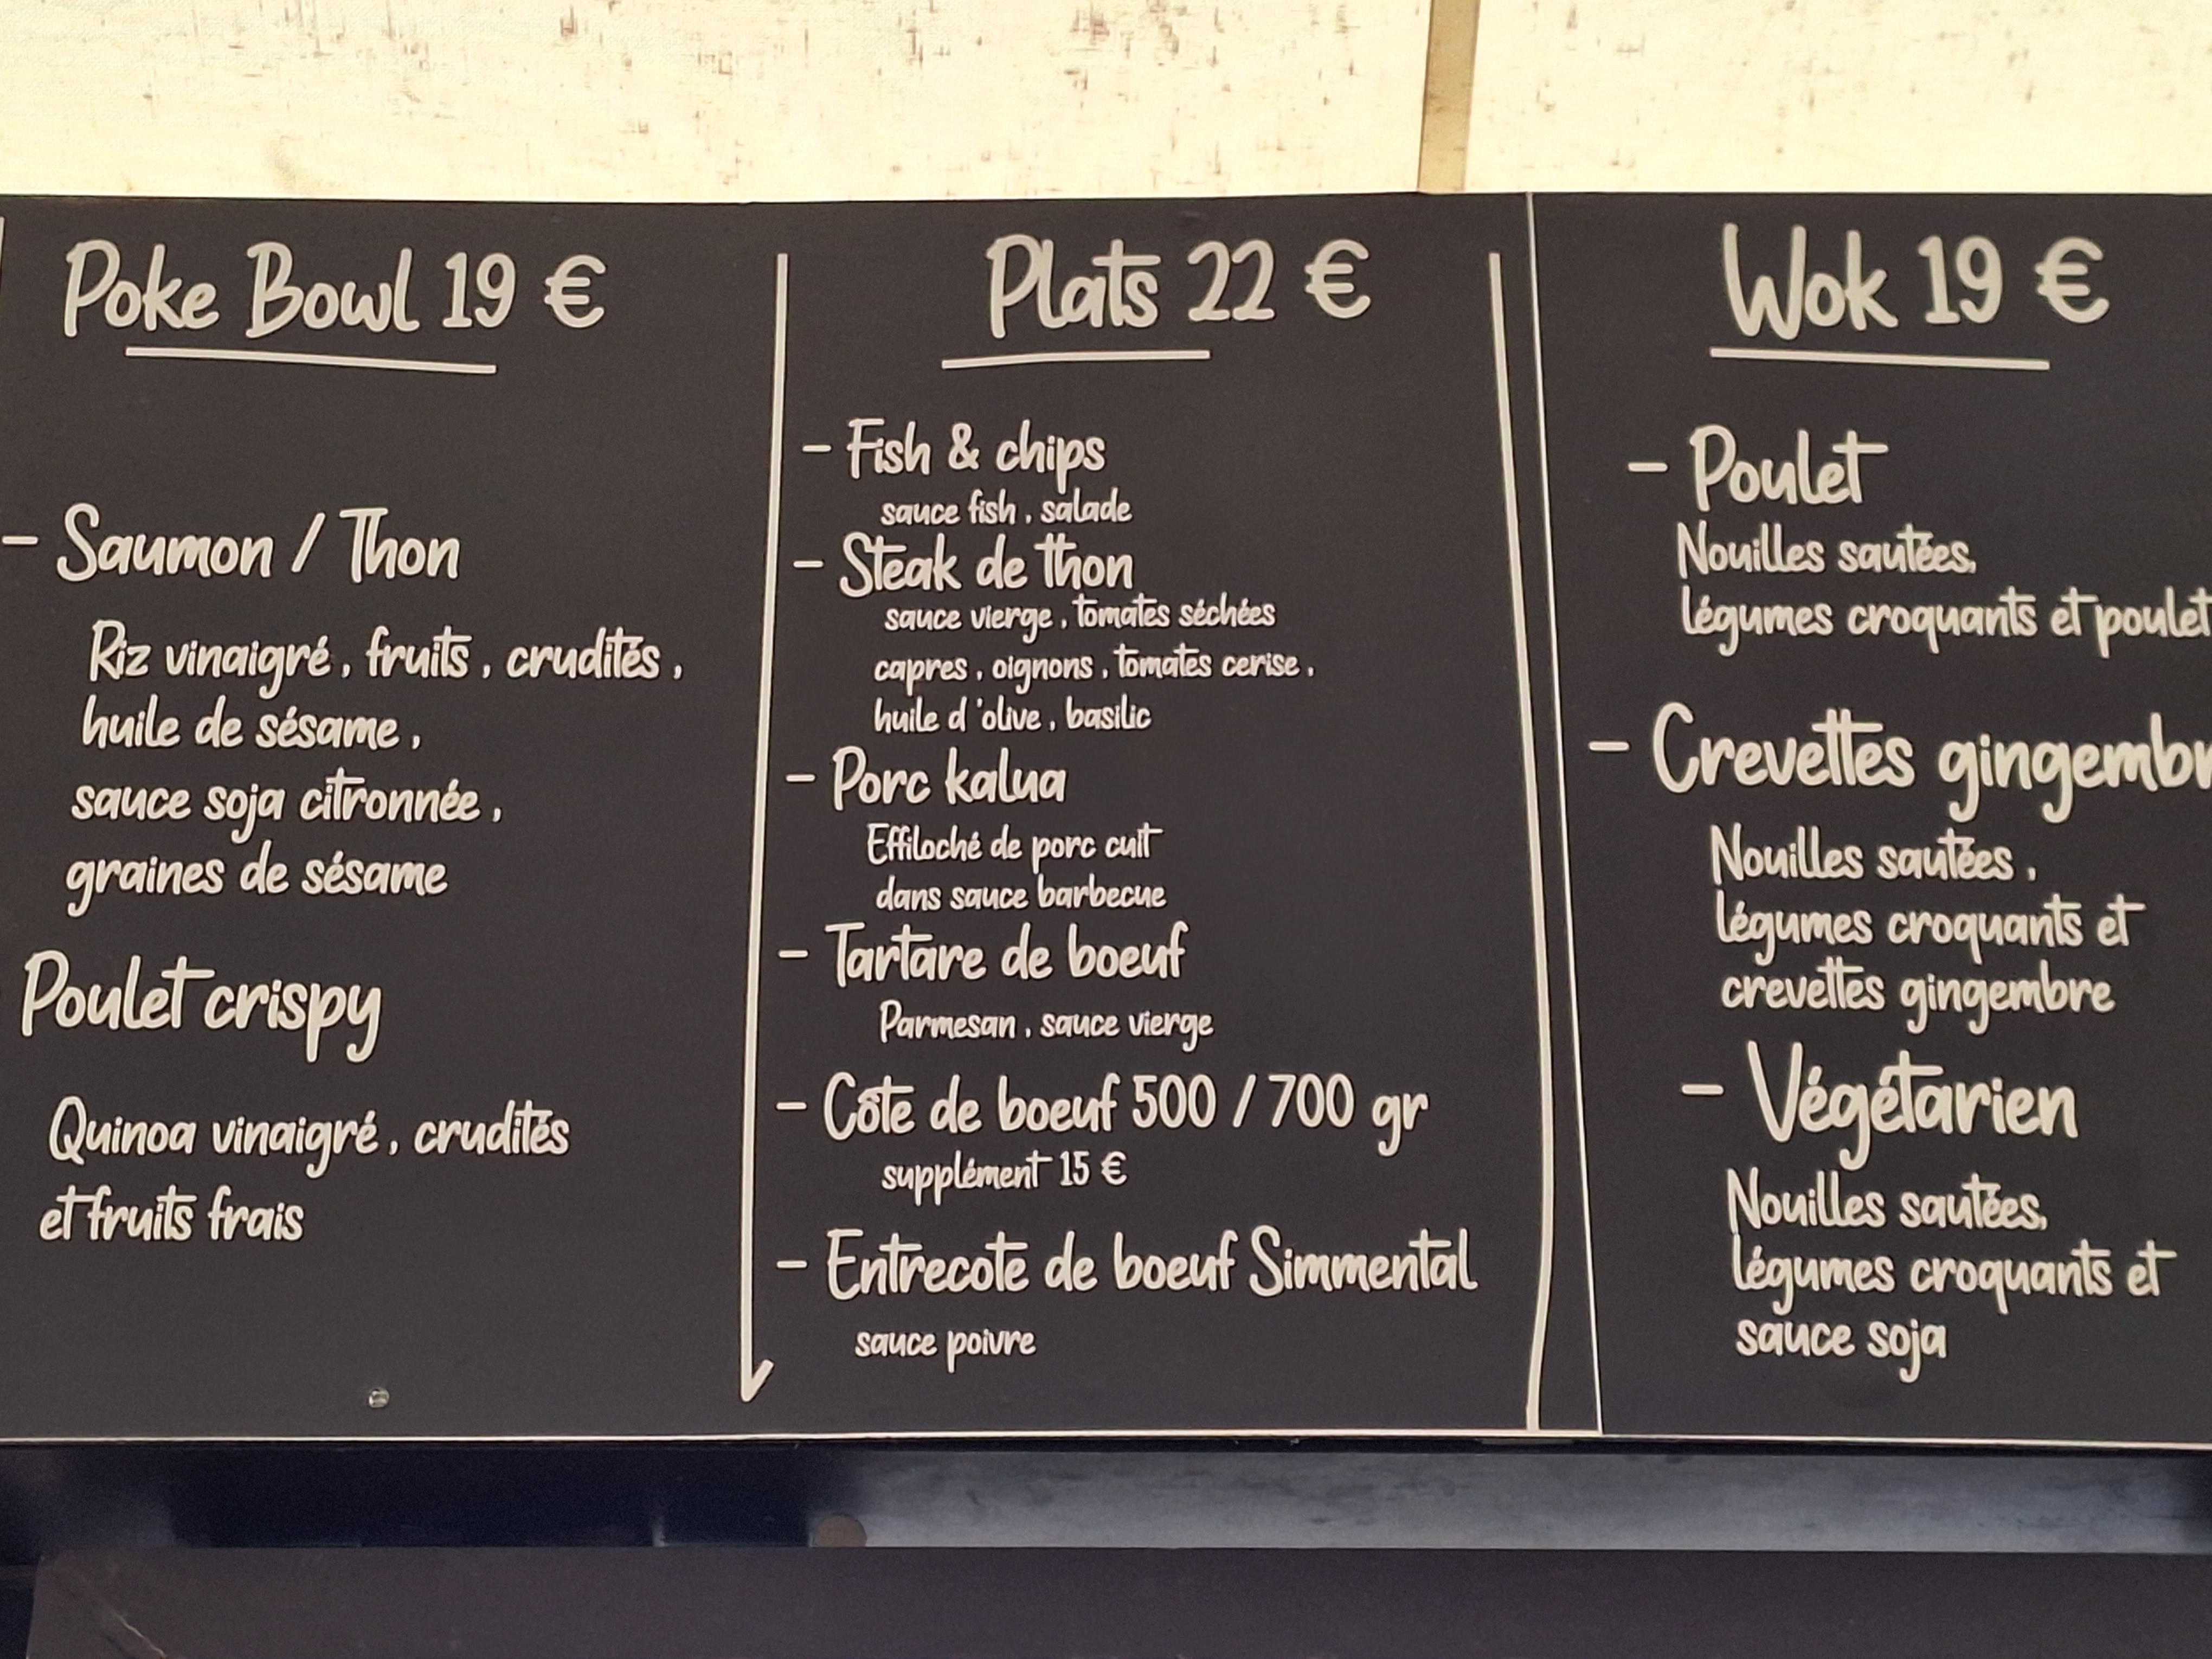 Poke Bowl 19 €
- Saumon / Thon
Riz vinaigré, fruits, crudités,
huile de sésame,
sauce soja citronnée,
graines de sésame
Poulet crispy
Quinoa vinaigré, crudités
et fruits frais
Plats 22 €
- Fish & chips
sauce fish, salade
- Steak de thon
sauce vierge, tomates séchées
capres, oignons, tomates cerise,
huile d'olive, basilic
- Porc kalua
Effiloché de porc cuit
dans sauce barbecue
- Tartare de boeuf
Parmesan, sauce vierge
- Côte de boeuf 500 / 700 gr
supplément 15 €
- Entrecote de boeuf Simmental
sauce poivre
Wok 19 €
- Poulet
Nouilles sautées,
légumes croquants et poulet
- Crevettes gingembr
Nouilles sautées,
légumes croquants et
crevettes gingembre
- Végétarien
Nouilles sautées,
légumes croquants et
sauce soja